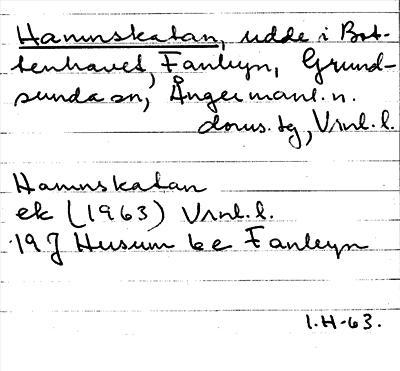 Hamnskatan, udde i Bot-
tenhavet, Fanbyn, Grund-
sunda sn, Ångermanl. n.
doms. tg, Vnl. l.
Hamnskatan
ek (1963) Vnl. l.
19J Husum be Fanbyn
1.H-63.